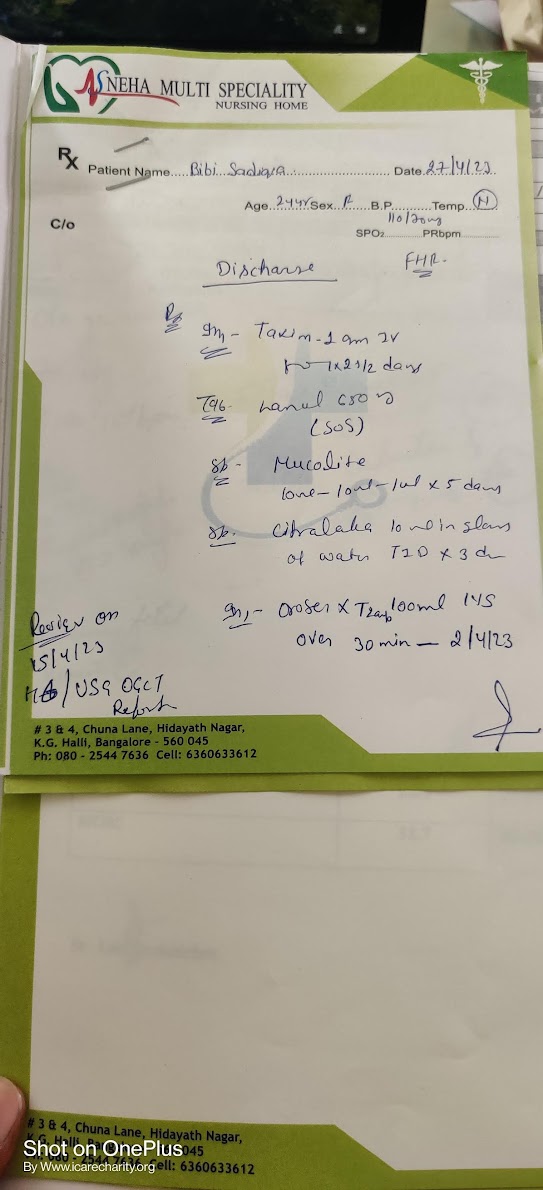 NEHA MULTI SPECIALITY
NURSING HOME
Rx Patient Name.....Bibi Sadiqa..... Date.27/4/23
Age..24yr Sex. F B.P.......... Temp. N
110/70mg
C/o
SPO2............PRbpm............
Discharge FHR-
Rx
Inj - Taxim-1 gm IV
1x2 1/2 days
Tab- 650
(SOS)
Sb- Mucolite
10ml-10ml-1ml x 5 days
Sb. Citralaka 10 ml in glass
of water TID x 3 d
Inj- Orofer x 100ml NS
over 30 min - 2/4/23
Review on
15/4/23
/USG OGCT
Report
# 3 & 4, Chuna Lane, Hidayath Nagar,
K.G. Halli, Bangalore - 560 045
Ph: 080 - 2544 7636 Cell: 6360633612
# 3 & 4, Chuna Lane, Hidayath Nagar,
K.G. Halli, Bangalore 560 045
2544 7636 Cell: 6360633612
Shot on OnePlus
By Www.icarecharity.org